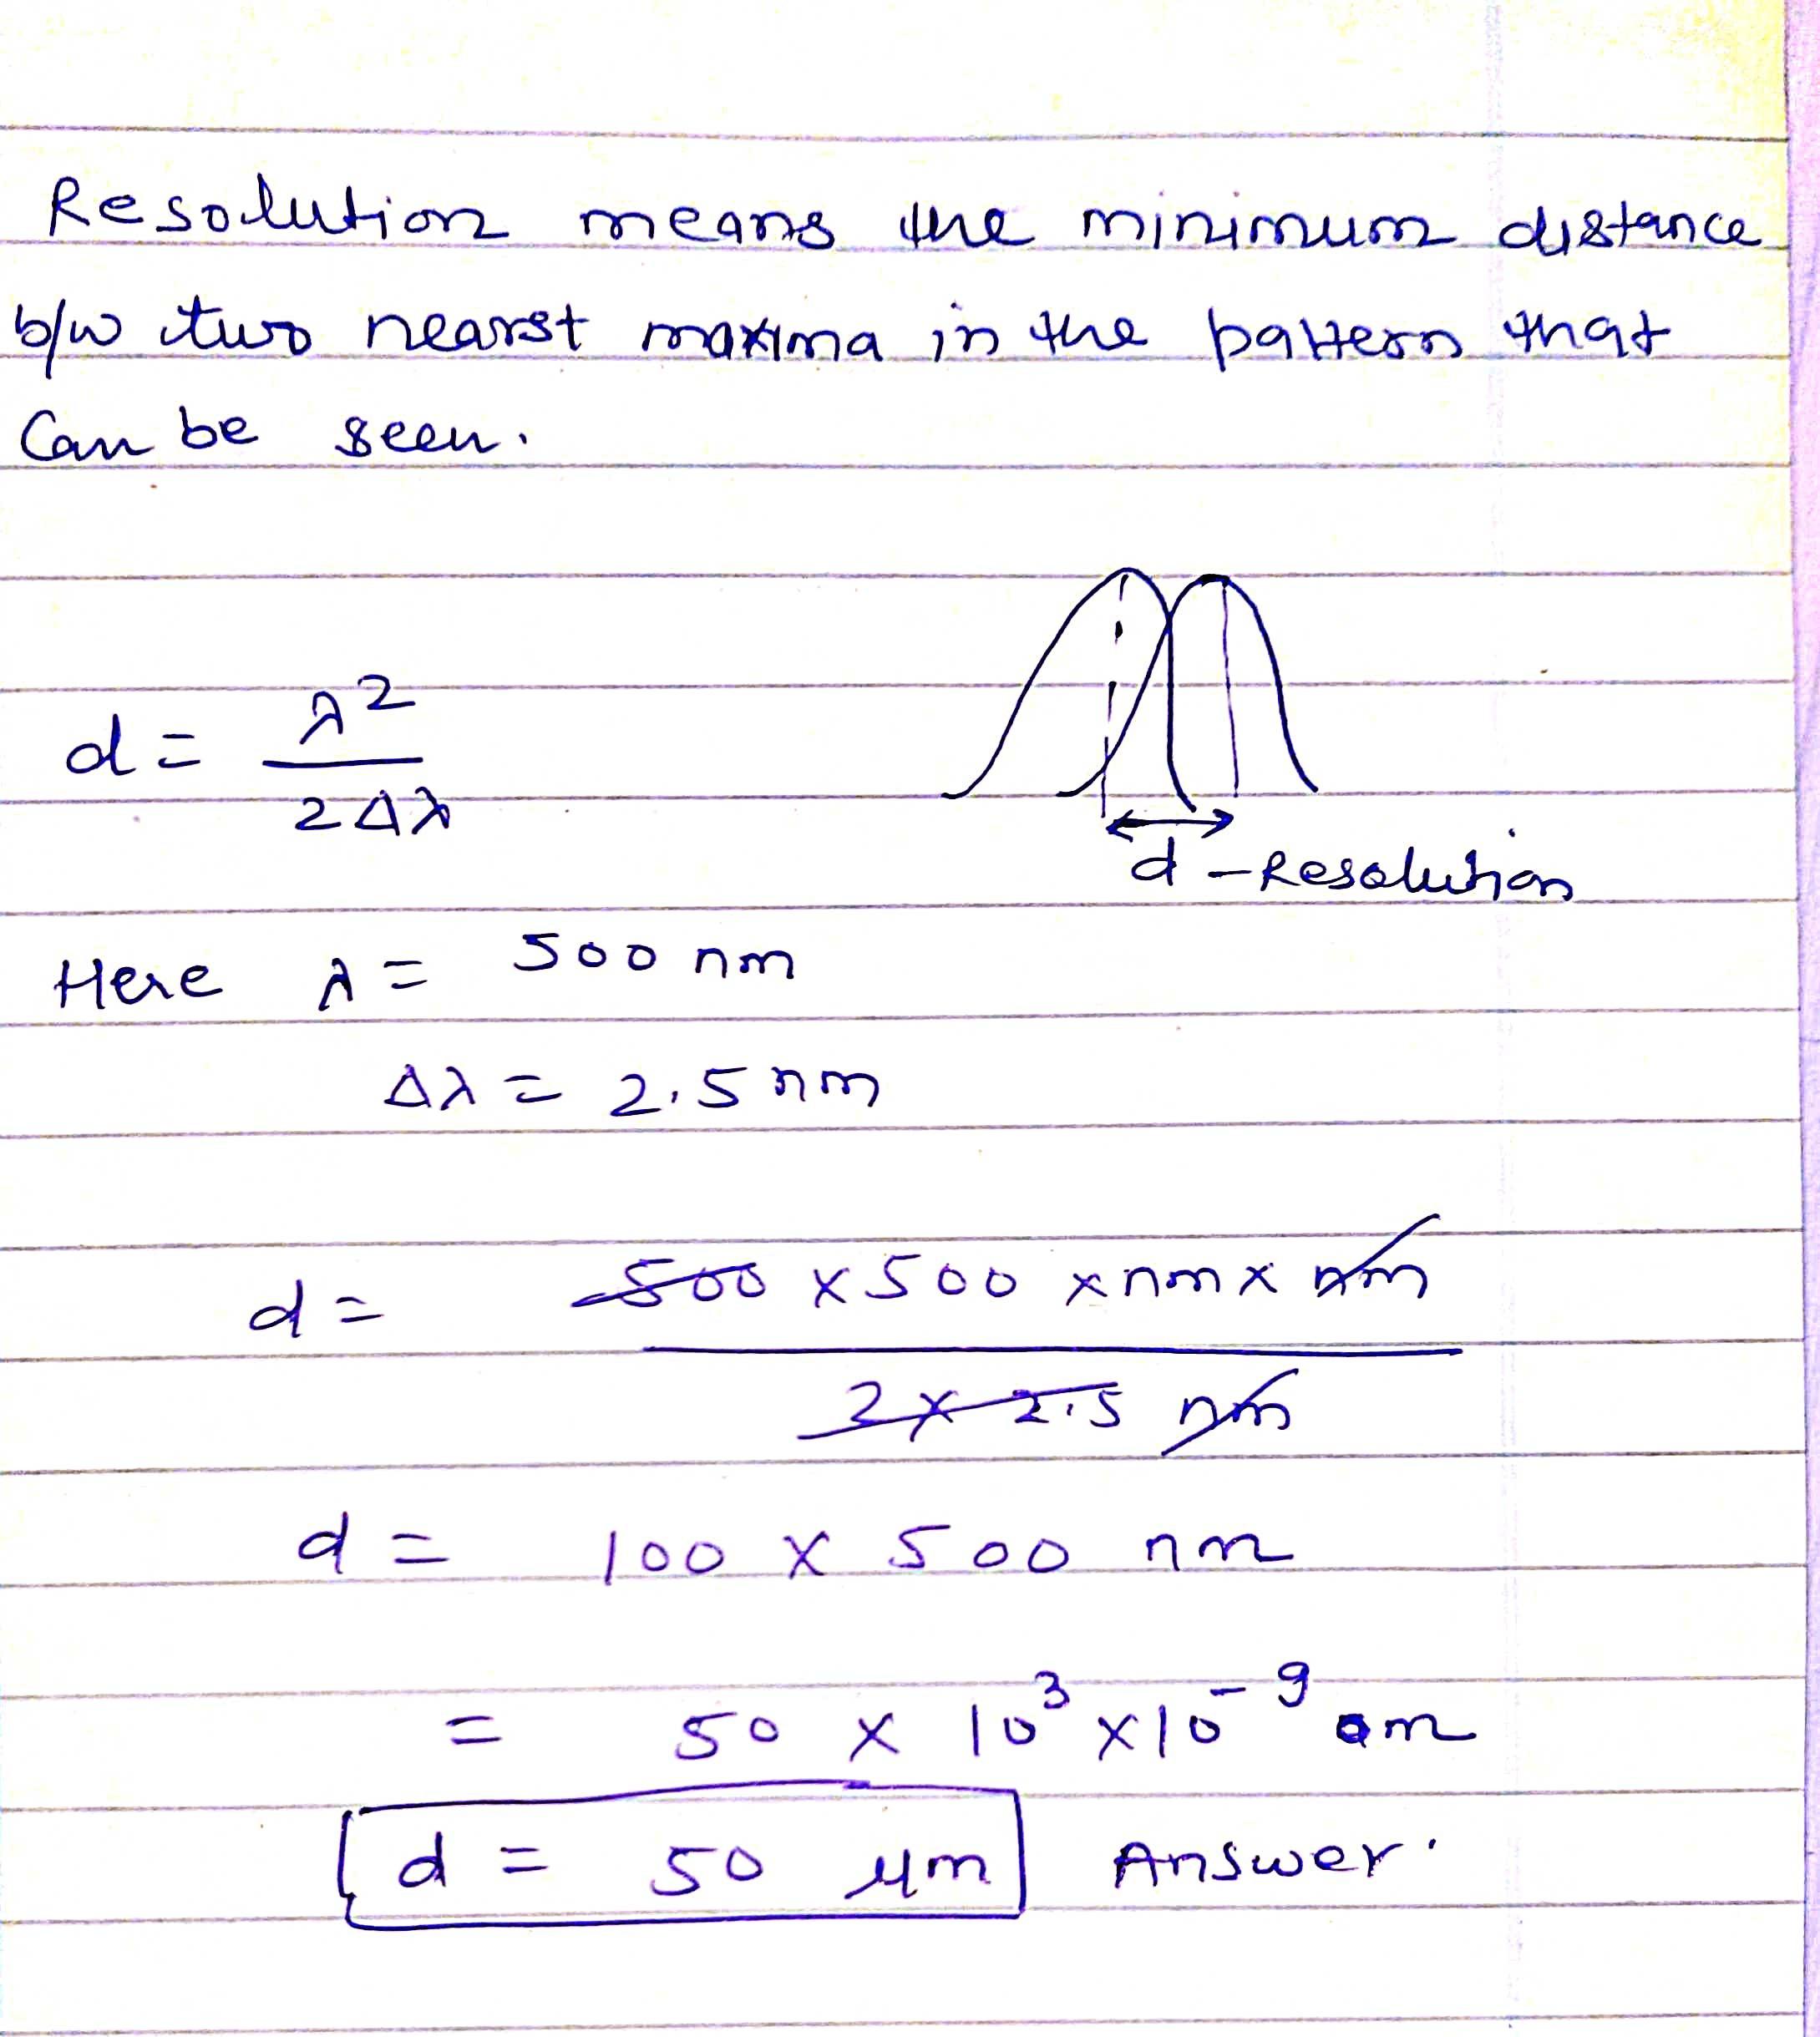 Resolution means the minimum distance
b/w two nearst maxima in the pattern that
Can be seen.
d = λ² / 2Δλ
d - Resolution
Here λ = 500 nm
Δλ = 2.5 nm
d = 500 × 500 × nm × nm / 2 × 2.5 nm
d = 100 × 500 nm
= 50 × 10³ × 10⁻⁹ m
d = 50 μm Answer.